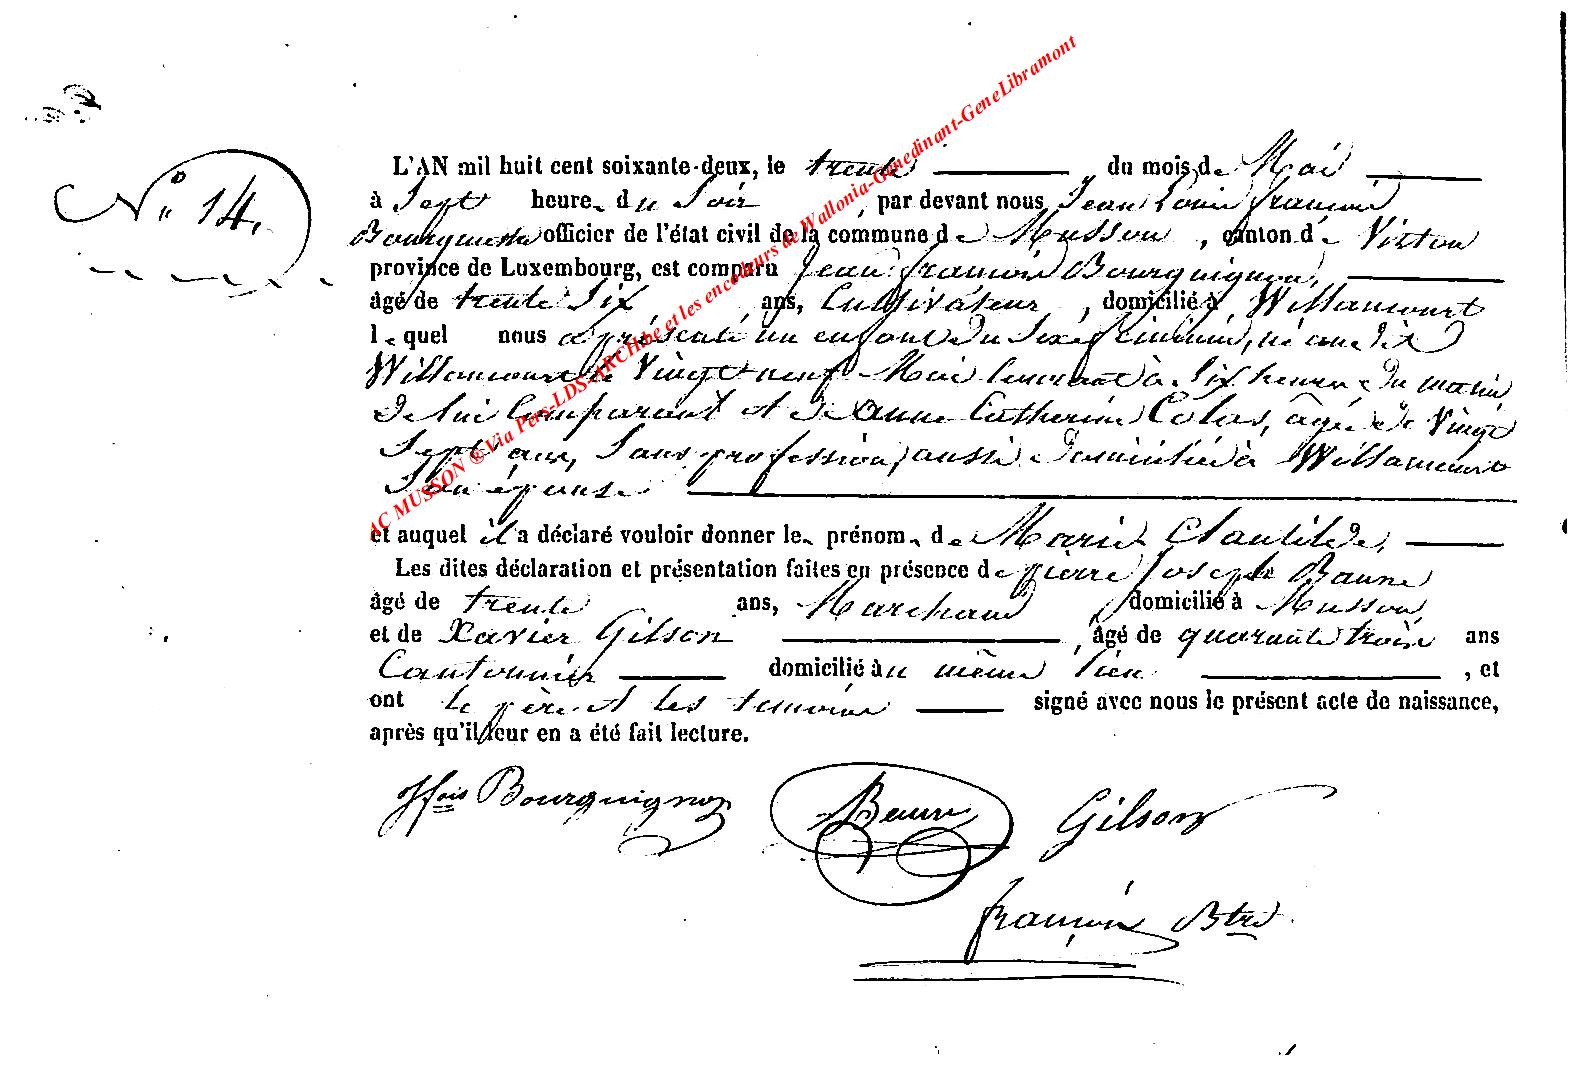 N° 14.
L'AN mil huit cent soixante-deux, le trente du mois de Mai
à Sept heure du Soir, par devant nous Jean Louis François
Bourgumestre officier de l'état civil de la commune de Musson, canton de Virton
province de Luxembourg, est comparu Jean françois Bourguignon,
âgé de trente Six ans, Cultivateur, domicilié à Willancourt
lequel nous a présenté un enfant du Sexe féminin, né au dit
Willancourt le Vingt neuf Mai Courant à Six heures du matin
de lui Comparant et de Anne Catherine Colas, âgée de Vingt
Sept ans, Sans profession, aussi domiciliée à Willancourt
Son épouse
et auquel il a déclaré vouloir donner le prénom de Marie Clautilde,
Les dites déclaration et présentation faites en présence de pierre Joseph Baune
âgé de trente ans, Marchand, domicilié à Musson
et de Xavier Gilson, âgé de quarante trois ans
Cantonnier domicilié au même lieu, et
ont le père et les temoins signé avec nous le présent acte de naissance,
après qu'il leur en a été fait lecture.
Jfois Bourguignon Beaune Gilson
françois Btre
AC MUSSON © Via Pers-LDS-ARCH.be et les encodeurs de Wallonia-Genedinant-GeneLibramont